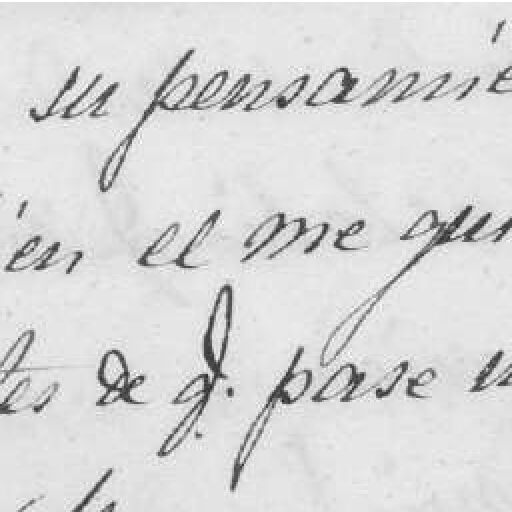 su pensamie
en el me qui
tes de q. pase u